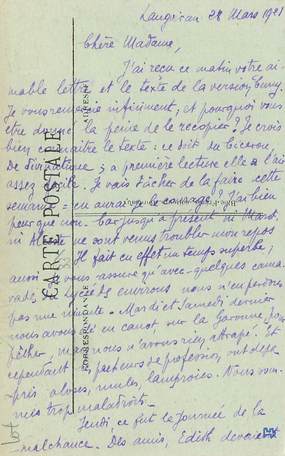 Langiran 28 Mars 1921
Chère Madame,
J'ai reçu ce matin votre ai-
mable lettre et le texte de la version
Je vous remercie infiniment, et pourquoi vous
être donné la peine de le recopier? Je crois
bien connaître le texte: ce doit du Cicéron,
De divinatione; à première lecture elle a l'air
assez facile. Je vais tâcher de la faire cette
semaine: en aurai-je le courage? J'ai bien
peur que non. Car jusqu'à présent ni
ni ne sont venus troubler mon repos
Il fait en effet un temps superbe;
aussi je vous assure qu'avec quelques cama-
rades de lycée des environs nous n'en perdons
pas une minute. Mardi et Samedi dernier
nous avons été en canot sur la Garonne, pour
pêcher, mais nous n'avons rien attrapé. Et
cependant pêcheurs de profession, ont
pris aloses, mules, lamproies. Nous som-
mes trop maladroits.
Jeudi, ce fut la journée de la
malchance. Des amis, Edith devaient
CARTE POSTALE
CORRESPONDANCE
ADRESSE
Lot